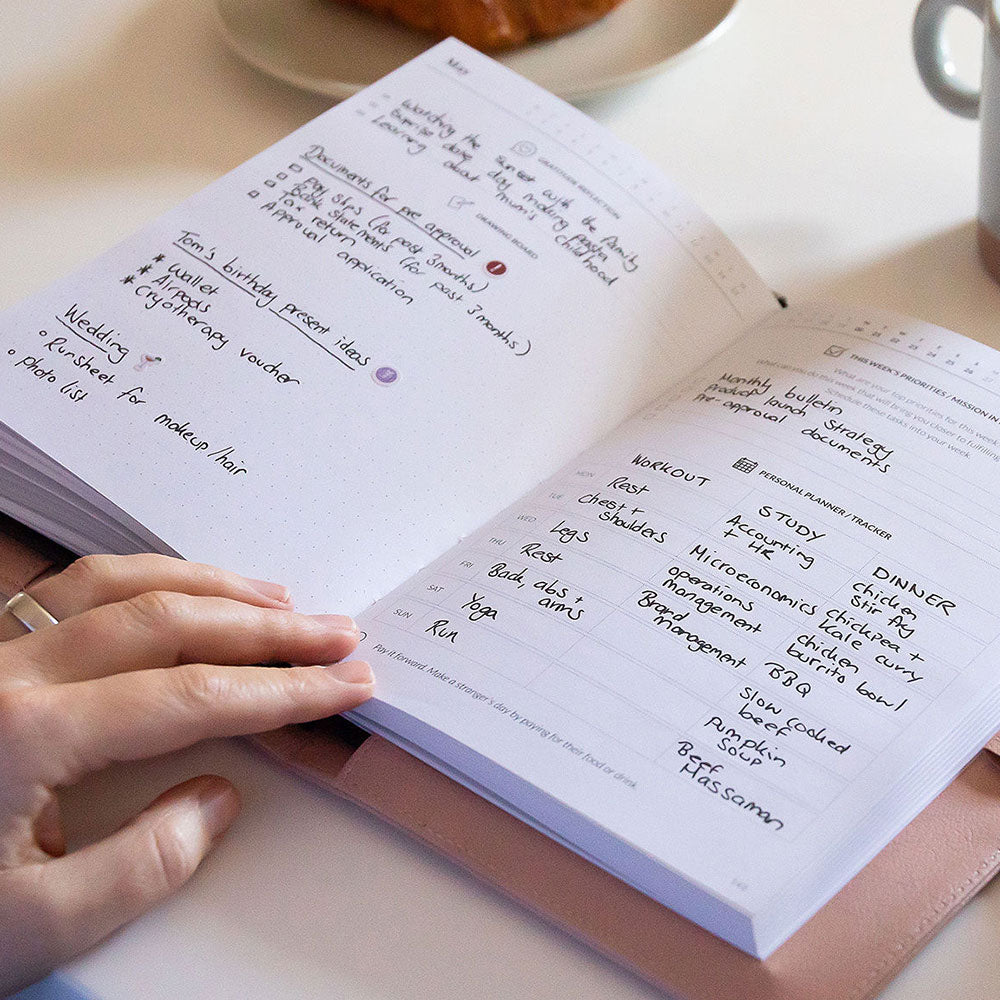 May
GRATITUDE REFLECTION
Watching the sunset with the family
Surprise date day making pasta
Learning about mum's childhood
DRAWING BOARD
Documents for pre approval
Pay slips (for past 3 months)
Bank statements (for past 3 months)
Tax return
Approval application
Tom's birthday present ideas
* Wallet
* Airpods
* Cryotherapy voucher
Wedding
o Runsheet for makeup/hair
o photo list
THIS WEEK'S PRIORITIES / MISSION IN
What are your top priorities for this week
What can you do this week that will bring you closer to fulfilling
Schedule these tasks into your week.
Monthly bulletin
product launch strategy
pre-approval documents
PERSONAL PLANNER / TRACKER
WORKOUT STUDY DINNER
MON Rest Accounting + HR chicken stir fry
TUE chest + shoulders Microeconomics chickpea + kale curry
WED Legs operations management chicken burrito bowl
THU Rest Brand management BBQ
FRI Back, abs + arms slow cooked beef
SAT Yoga Pumpkin soup
SUN Run Beef Massaman
Pay it forward. Make a stranger's day by paying for their food or drink